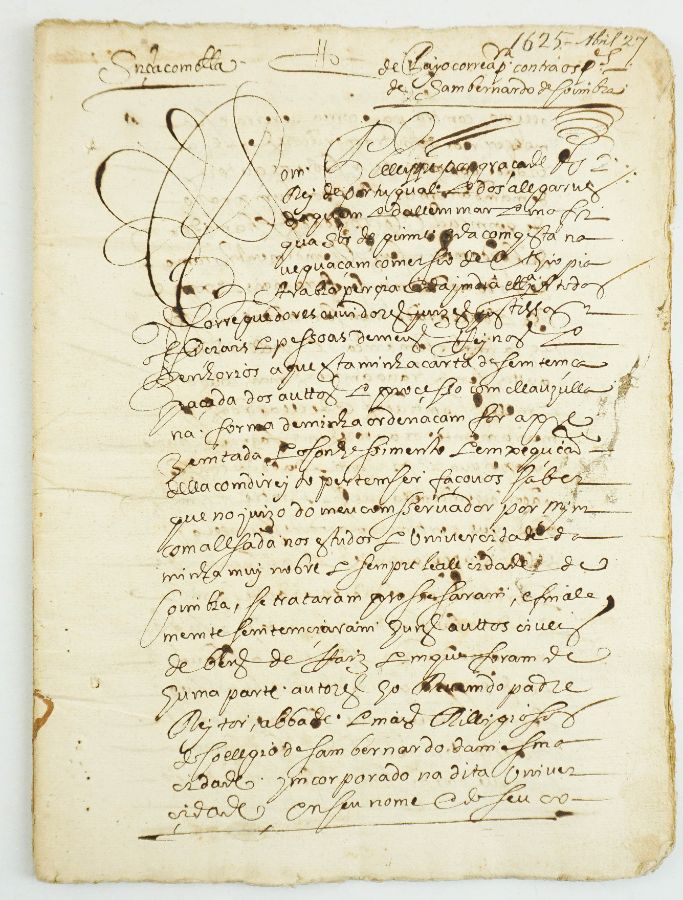 1625 - Abril 27
de Layo correa contra os
de Sam bernardo de Coimbra
Dom Phellippe por graça de Ds
Rej de portugual E dos allgarves
da quem E dallem mar Em a fri
qua sor de guine E da comquista na
veguacam comersio de Ethiopia
Arabia perçia E da jndia A todos
Corregedores ouvidores juizes justissas
Officiais E pessoas de meus Reynos
senhorios a que esta minha carta de semtemça
tirada dos auttos E proçesso com
na forma de minha ordenacam for apre
zemtada E o conhessimento
della com direjto pertemser façovos saber
que no juizo do meu comservador por mim
com allsada nos estudos E Univercidade da
minha muj nobre E sempre leall cidade de
Coimbra, se trataram prosessaram, e finale
memte sentemciaram huns auttos civeis
de bens de Raiz Em que foram de
huma parte autores ho Reverendo padre
Reytor, abbade E mais Relligiossos
do Collegio de sam bernardo da mesma
cidade. Yncorporado na dita Univer
cidade em seu nome E de seu co-